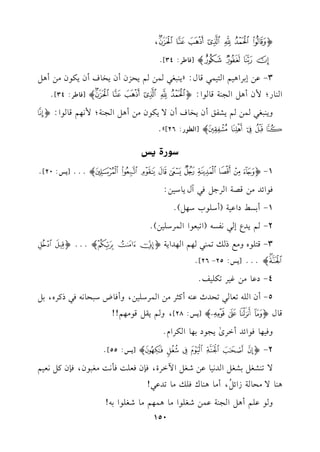 ﴿وَقَالُوا۟ ٱلْحَمْدُ لِلَّهِ ٱلَّذِىٓ أَذْهَبَ عَنَّا ٱلْحَزَنَ ۖ
إِنَّ رَبَّنَا لَغَفُورٌ شَكُورٌ﴾ [فاطر: ٣٤].
٣- عن إبراهيم التيمي قال: «ينبغي لمن لم يحزن أن يخاف أن يكون من أهل
النار؛ لأن أهل الجنة قالوا: ﴿ٱلْحَمْدُ لِلَّهِ ٱلَّذِىٓ أَذْهَبَ عَنَّا ٱلْحَزَنَ﴾ [فاطر: ٣٤].
وينبغي لمن لم يشفق أن يخاف أن لا يكون من أهل الجنة؛ لأنهم قالوا: ﴿إِنَّا
كُنَّا قَبْلُ فِىٓ أَهْلِنَا مُشْفِقِينَ﴾ [الطور: ٢٦]».
سورة يس
١- ﴿وَجَآءَ مِنْ أَقْصَا ٱلْمَدِينَةِ رَجُلٌ يَسْعَىٰ قَالَ يَـٰقَوْمِ ٱتَّبِعُوا۟ ٱلْمُرْسَلِينَ﴾ ... [يس: ٢٠].
فوائد من قصة الرجل في آل ياسين:
١- أبسط داعية (أسلوب سهل).
٢- لم يدع إلي نفسه (اتبعوا المرسلين).
٣- قتلوه ومع ذلك تمني لهم الهداية ﴿إِنِّىٓ ءَامَنتُ بِرَبِّكُمْ﴾ ... ﴿قِيلَ ٱدْخُلِ
ٱلْجَنَّةَ﴾ ... [يس: ٢٥-٢٦].
٤- دعا من غير تكليف.
٥- أن الله تعالي تحدث عنه أكثر من المرسلين، وأفاض سبحانه في ذكره، بل
قال ﴿وَمَآ أَنزَلْنَا عَلَىٰ قَوْمِهِۦ﴾ [يس: ٢٨]، ولم يقل قومهم!!
وفيها فوائد أخرىٰ يجود بها الكرام.
٢- ﴿إِنَّ أَصْحَـٰبَ ٱلْجَنَّةِ ٱلْيَوْمَ فِى شُغُلٍ فَـٰكِهُونَ﴾ [يس: ٥٥].
لا تنشغل بشغل الدنيا عن شغل الآخرة، فإن فعلت فأنت مغبون، فإن كل نعيم
هنا لا محالة زائلٌ، أما هناك فلك ما تدعي!
ولو علم أهل الجنة عمن شغلوا ما همهم ما شغلوا به!
١٥٠